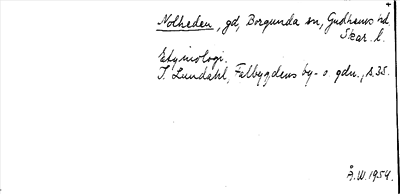 Nolheden, gd, Borgunda sn, Gudhems hd.
Skar. l.
Etymologi.
I. Lundahl, Falbygdens by- o. gdn., s. 35.
Å.W. 1954.